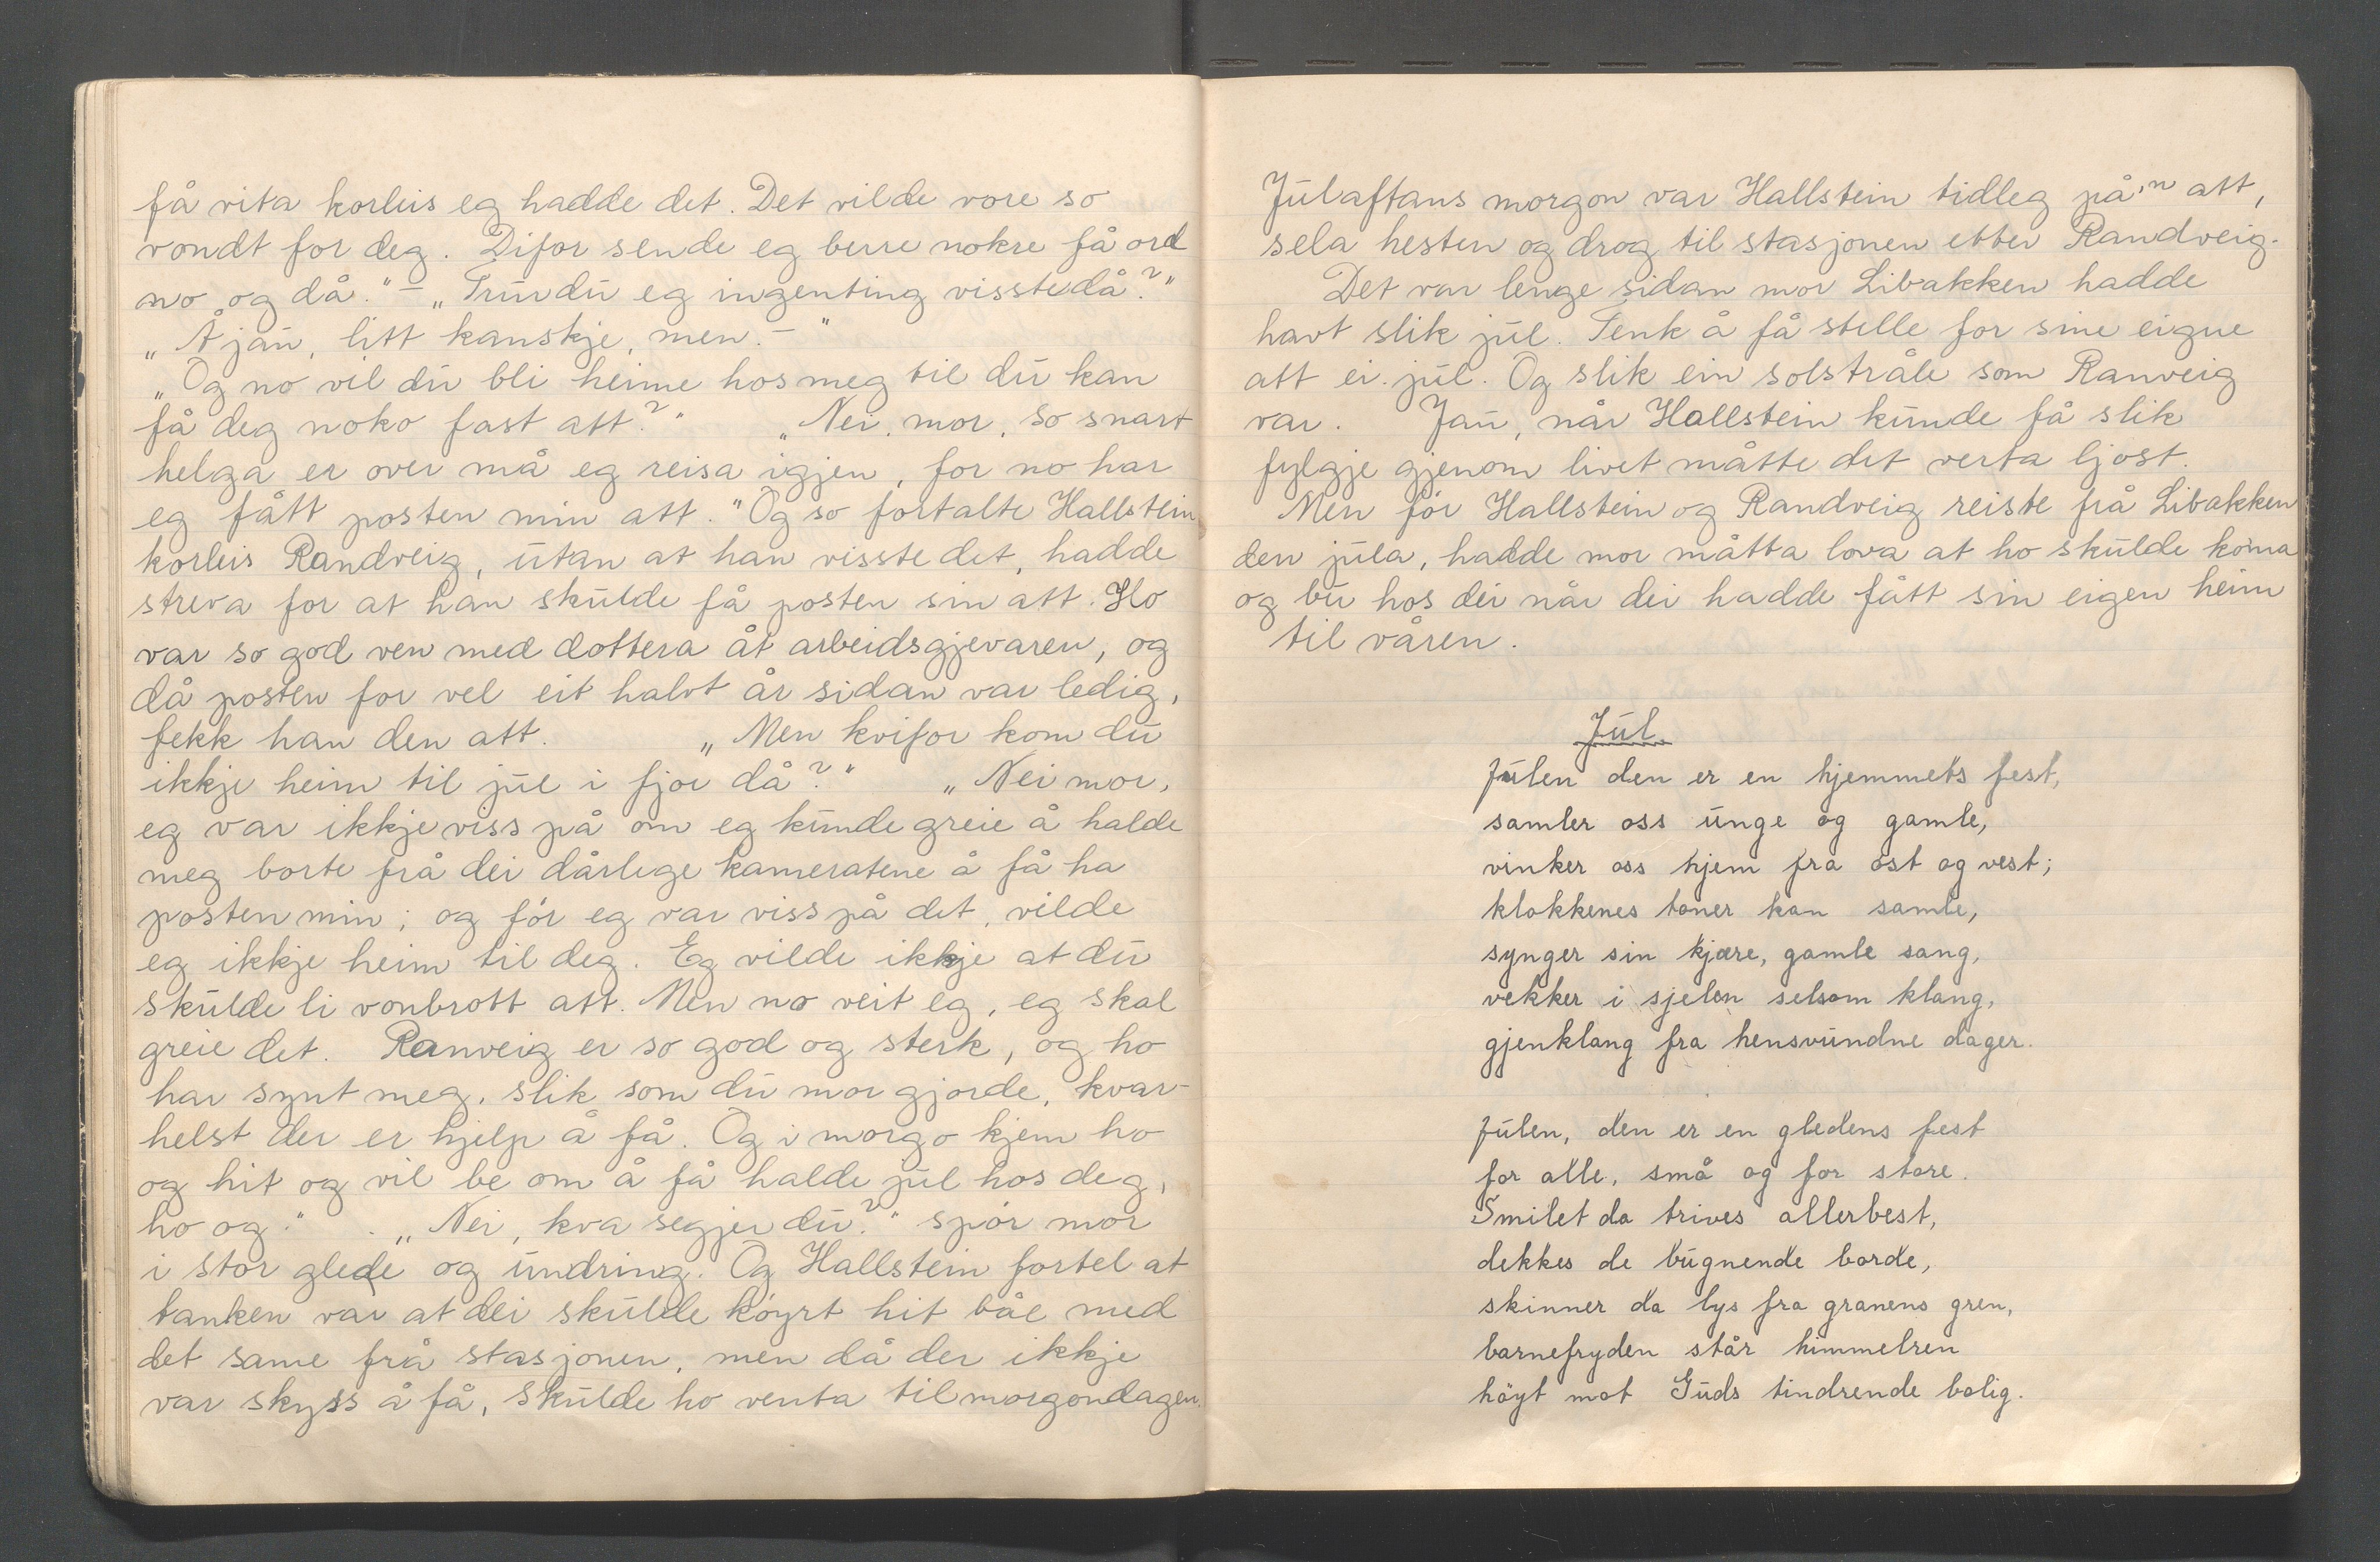 få vita korleis eg hadde det. Det vilde vore so
vondt for deg. Difor sende eg berre nokre få ord
no og då." – „Trur du eg ingenting visste då?"
„Å jau, litt kanskje, men. – "
„Og no vil du bli heime hos meg til du kan
få deg noko fast att?" „Nei, mor, so snart
helga er over må eg reisa igjen, for no har
eg fått posten min att." Og so fortalte Hallstein
korleis Randveig, utan at han visste det, hadde
streva for at han skulde få posten sin att. Ho
var so god ven med dottera åt arbeidsgjevaren, og
då posten for vel eit halvt år sidan var ledig,
fekk han den att. „Men kvifor kom du
ikkje heim til jul i fjor då?" „Nei mor,
eg var ikkje viss på om eg kunde greie å halde
meg borte frå dei dårlege kameratene å få ha
posten min; og før eg var viss på det, vilde
eg ikkje heim til deg. Eg vilde ikkje at du
skulde li vonbrott att. Men no veit eg, eg skal
greie det. Ranveig er so god og sterk, og ho
har synt meg, slik som du mor gjorde, kvar-
helst der er hjelp å få. Og i morgo kjem ho
og hit og vil be om å få halde jul hos deg,
ho og." „Nei, kva segjer du?" spör mor
i stor glede og undring. Og Hallstein fortel at
tanken var at dei skulde köyrt hit båe med
det same frå stasjonen, men då der ikkje
var skyss å få, skulde ho venta til morgondagen.
Julaftans morgon var Hallstein tidleg på'n att,
sela hesten og drog til stasjonen etter Randveig.
Det var lenge sidan mor Libakken hadde
havt slik jul. Tenk å få stelle for sine eigne
att ei jul. Og slik ein solstråle som Ranveig
var. Jau, når Hallstein kunde få slik
fylgje gjenom livet måtte det verta ljost.
Men för Hallstein og Randveig reiste frå Libakken
den jula, hadde mor måtta lova at ho skulde koma
og bu hos dei når dei hadde fått sin eigen heim
til våren.
Jul
Julen den er en hjemmets fest,
samler oss unge og gamle,
vinker oss hjem fra öst og vest;
klokkenes toner kan samle,
synger sin kjære, gamle sang,
vekker i sjelen selsom klang,
gjenklang fra hensvundne dager.
Julen, den er en gledens fest
for alle, små og for store.
Smilet da trives allerbest,
dekkes de bugnende borde,
skinner da lys fra granens gren,
barnefryden står himmelren
höyt mot Guds tindrende bolig.